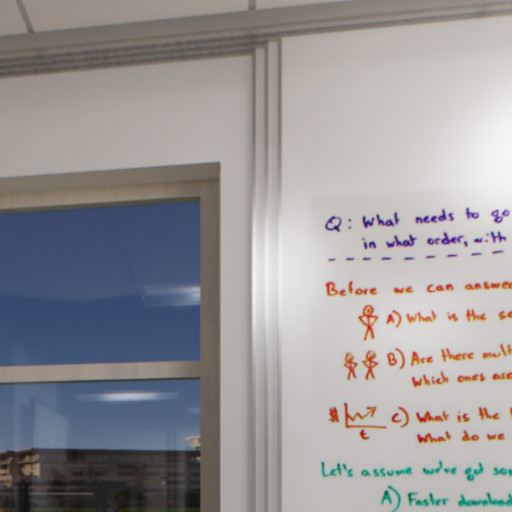 Q: What needs to go
in what order, with
Before we can answer
A) What is the
B) Are there
Which ones are
$ t C) What is the
What do we
Let's assume we've got
A) Faster